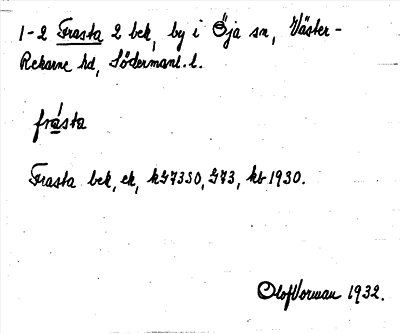 1-2 Frasta 2 bek, by i Öja sn, Väster-
Rekarne hd, Södermanl. l.
frásta
Frasta bek, ek, kG7330, G73, kb 1930.
Olof Vorman 1932.